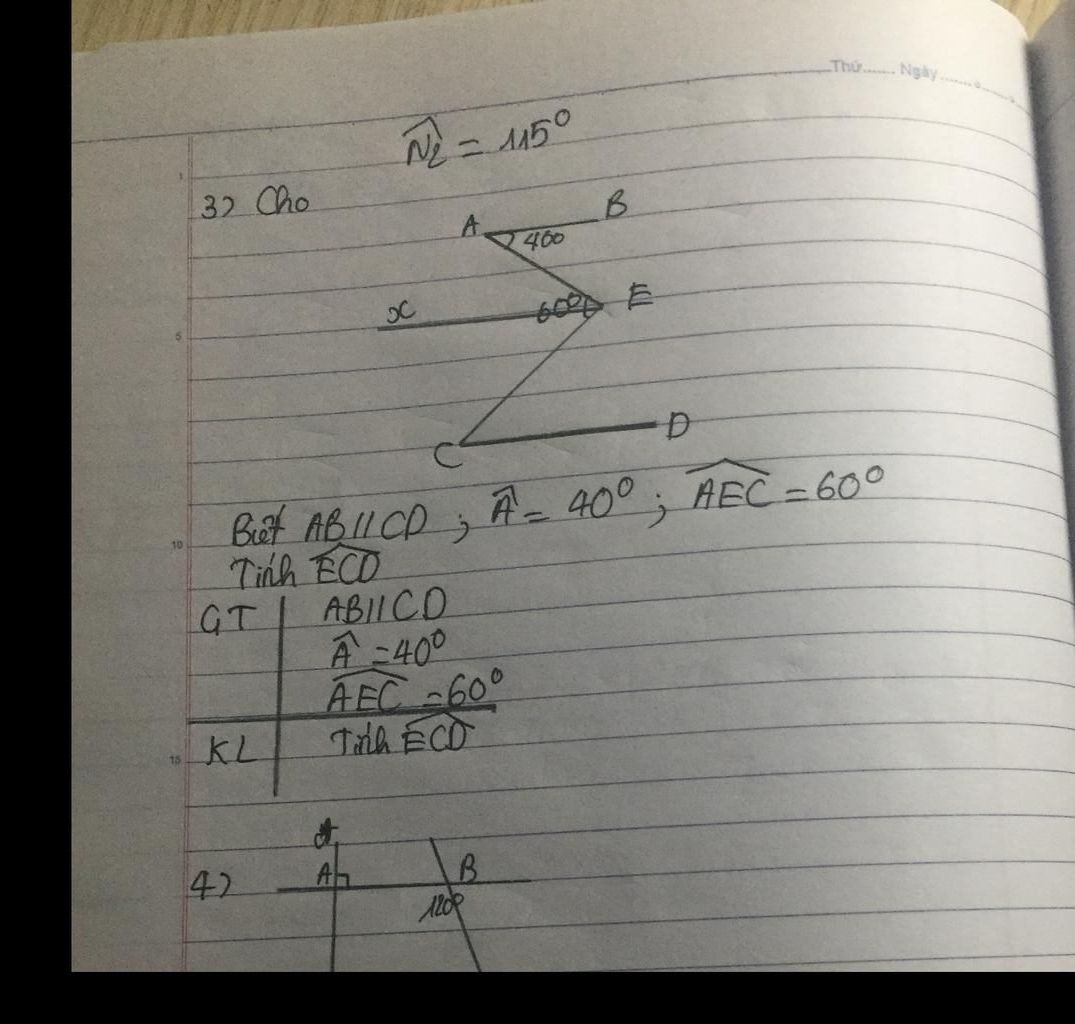 Thứ...... Ngày.......
N̂₂ = 115⁰
1
3) Cho
A B
40⁰
x 60⁰ E
5
C D
Biết AB // CD ; Â = 40⁰ ; AEC = 60⁰
10
Tính ECD
GT AB // CD
Â = 40⁰
AEC = 60⁰
KL Tính ECD
15
4) A B
120⁰